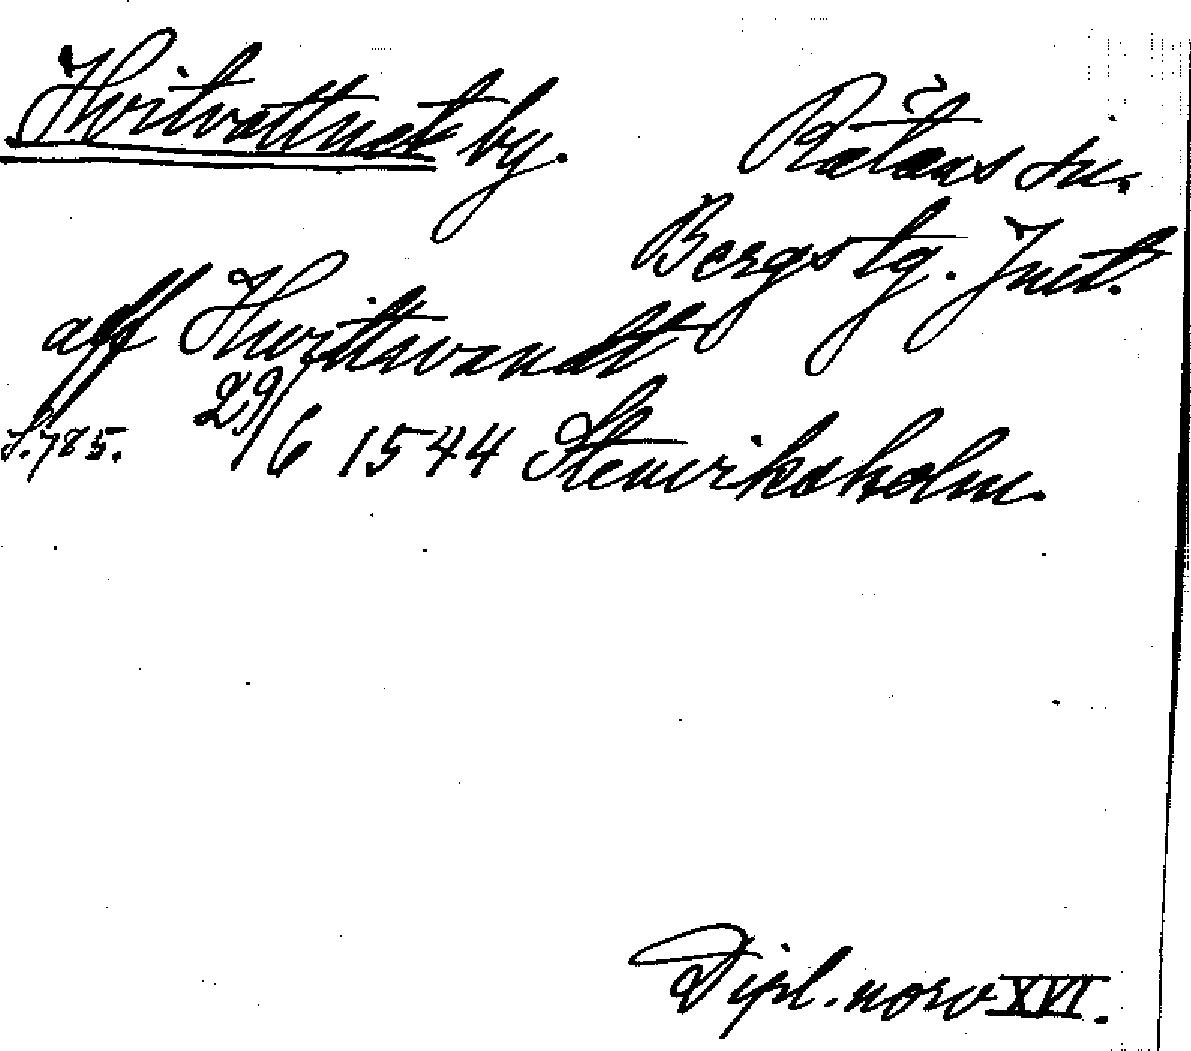 Hvitvattnet by.
Rätans sn.
Bergs tg. Jmt.
aff Hwittsvandt
S. 785. 29/6 1544 Stenviksholm.
Dipl. norv XVI.